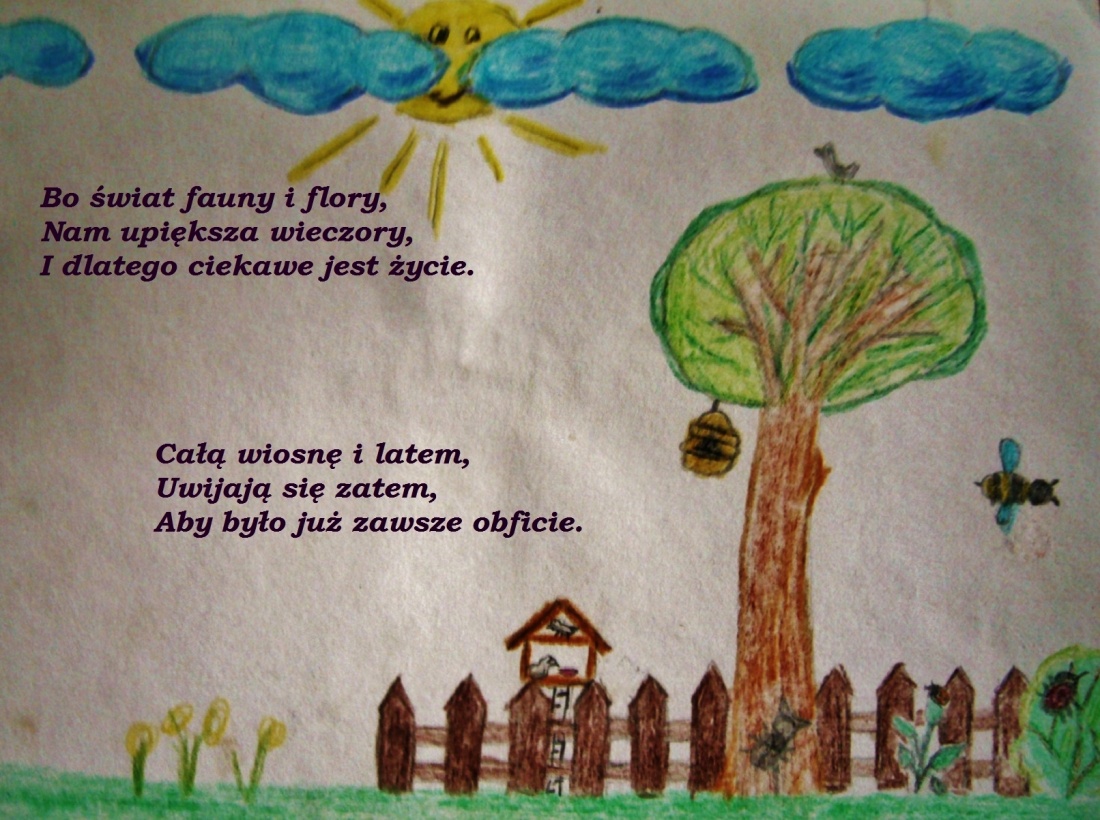 Bo świat fauny i flory,
Nam upiększa wieczory,
I dlatego ciekawe jest życie.
Całą wiosnę i latem,
Uwijają się zatem,
Aby było już zawsze obficie.